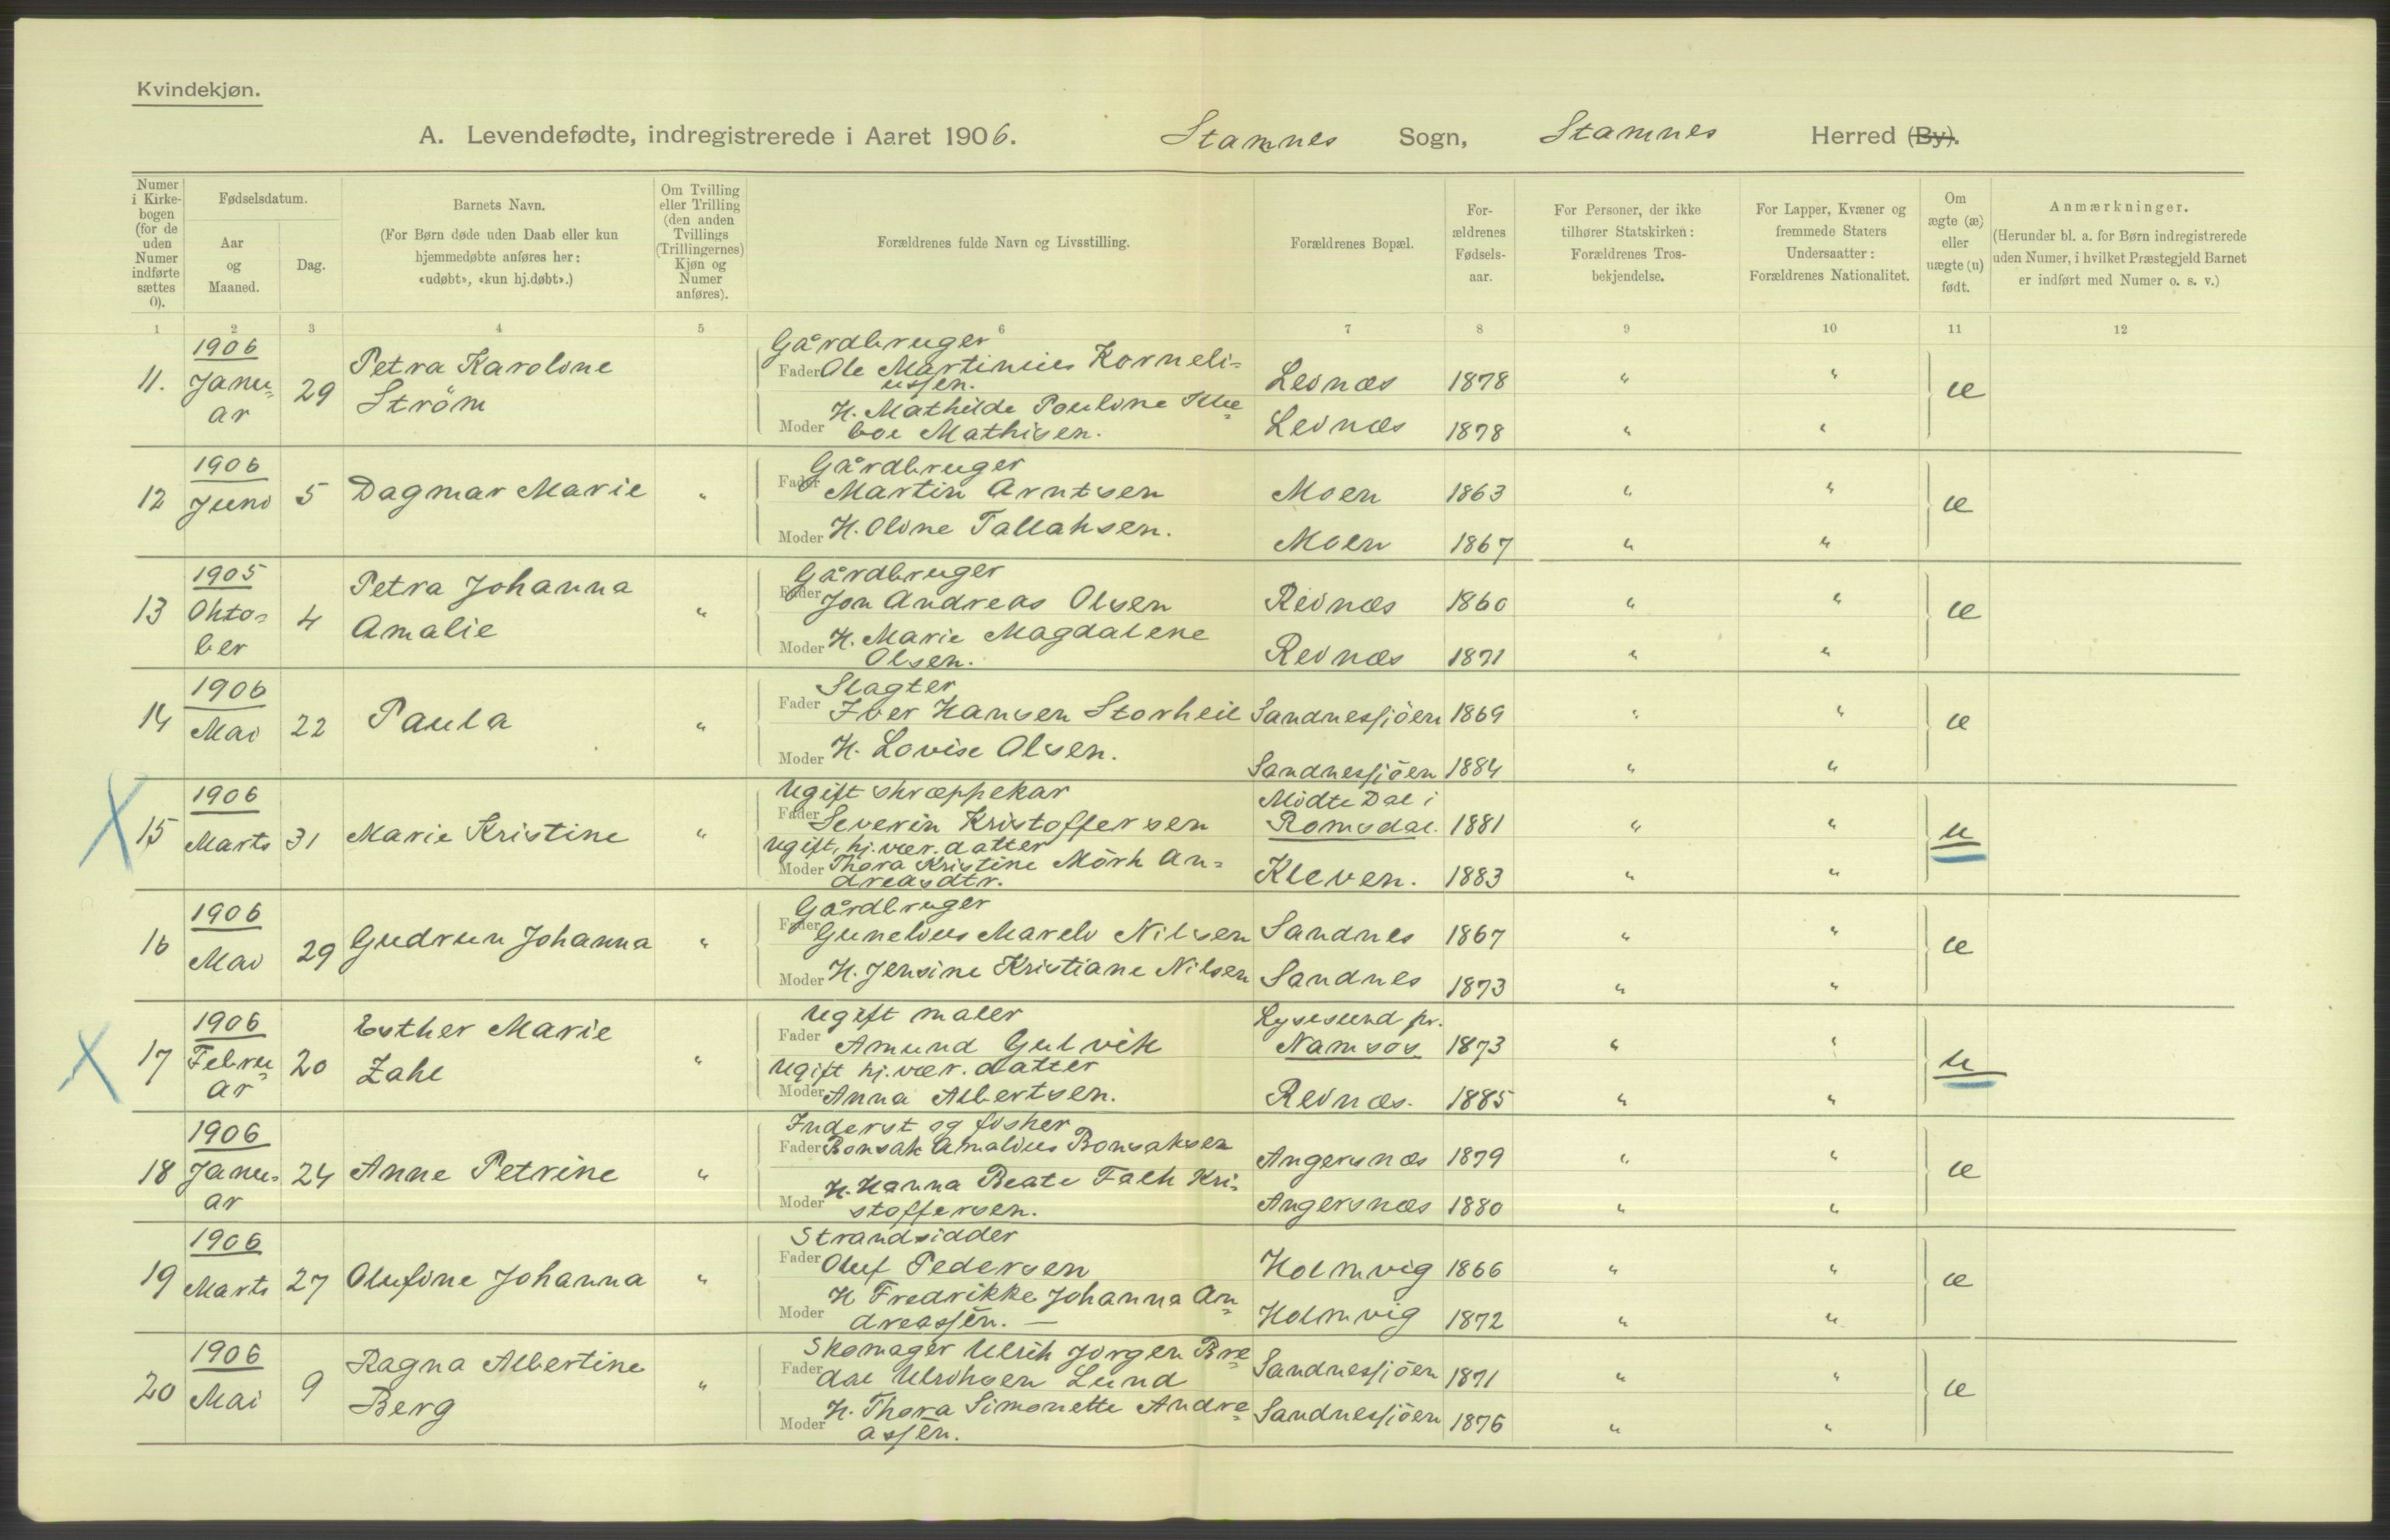 Kvindekjøn.
A. Levendefødte, indregistrerede i Aaret 1906. Stamnes Sogn, Stamnes Herred (By).
Numer i Kirkebogen (for de uden Numer indførte sættes 0).
Fødselsdatum.
Aar og Maaned.
Dag.
Barnets Navn.
(For Børn døde uden Daab eller kun hjemmedøbte anføres her: «udøbt», «kun hj.døbt».)
Om Tvilling eller Trilling (den anden Tvillings (Trillingernes) Kjøn og Numer anføres).
Forældrenes fulde Navn og Livsstilling.
Forældrenes Bopæl.
Forældrenes Fødselsaar.
For Personer, der ikke tilhører Statskirken: Forældrenes Trosbekjendelse.
For Lapper, Kvæner og fremmede Staters Undersaatter: Forældrenes Nationalitet.
Om ægte (æ) eller uægte (u) født.
Anmærkninger.
(Herunder bl. a. for Børn indregistrerede uden Numer, i hvilket Præstegjeld Barnet er indført med Numer o. s. v.)
1 2 3 4 5 6 7 8 9 10 11 12
1906 Gårdbruger
11. Janu= ar 29 Petra Karoline Ström
Fader Ole Martinius Korneli= ussen. Leinæs 1878 " " æ
Moder H. Mathilde Pouline
boe Mathisen. Leinæs 1878 " "
1906 Gårdbruger
12 Juni 5 Dagmar Marie " Fader Martin Arntsen Moen 1863 " " æ
Moder H. Oline Tallaksen. Moen 1867 " "
1905 Gårdbruger
13 Okto= ber 4 Petra Johanna Amalie " Fader Jon Andreas Olsen Reinæs 1860 " " æ
Moder H. Marie Magdalene Olsen. Reinæs 1871 " "
1906 Slagter
14 Mai 22 Paula " Fader Iver Hansen Storheil Sandnessjöen 1869 " " æ
Moder H. Lovise Olsen. Sandnessjöen 1884 " "
1906 Ugift skræppekar Midte Dal i
15 Marts 31 Marie Kristine " Fader Severin Kristoffersen Romsdal. 1881 " " u
Ugift, hj.vær. datter
Moder Thora Kristine Mörk An= dreasdtr. Kleven. 1883 " "
1906 Gårdbruger
16 Mai 29 Gudrun Johanna " Fader Gunelius Mareli Nilsen Sandnes 1867 " " æ
Moder H. Jensine Kristiane Nilsen Sandnes 1873 " "
1906 Ugift maler Lysesund pr.
17 Febru= ar 20 Esther Marie Zahl " Fader Amund Gulvik Namsos 1873 " " u
Ugift hj.vær. datter
Moder Anna Albertsen. Reinæs. 1885 " "
1906 Inderst og fisker
18 Janu= ar 24 Anne Petrine " Fader Bonsak Amalius Bonsaksen Angersnæs 1879 " " æ
Moder H. Hanna Beate Falk Kri= stoffersen. Angersnæs 1880 " "
1906 Strandsidder
19 Marts 27 Olufine Johanna " Fader Oluf Pedersen Holmvig 1866 " " æ
Moder H Fredrikke Johanna An= dreassen. — Holmvig 1872 " "
1906 Skomager Ulrik Jörgen Bre=
20 Mai 9 Ragna Albertine Berg " Fader dal Ulriksen Lund Sandnessjöen 1871 " " æ
Moder H. Thora Simonette Andre= assen. Sandnessjöen 1876 " "